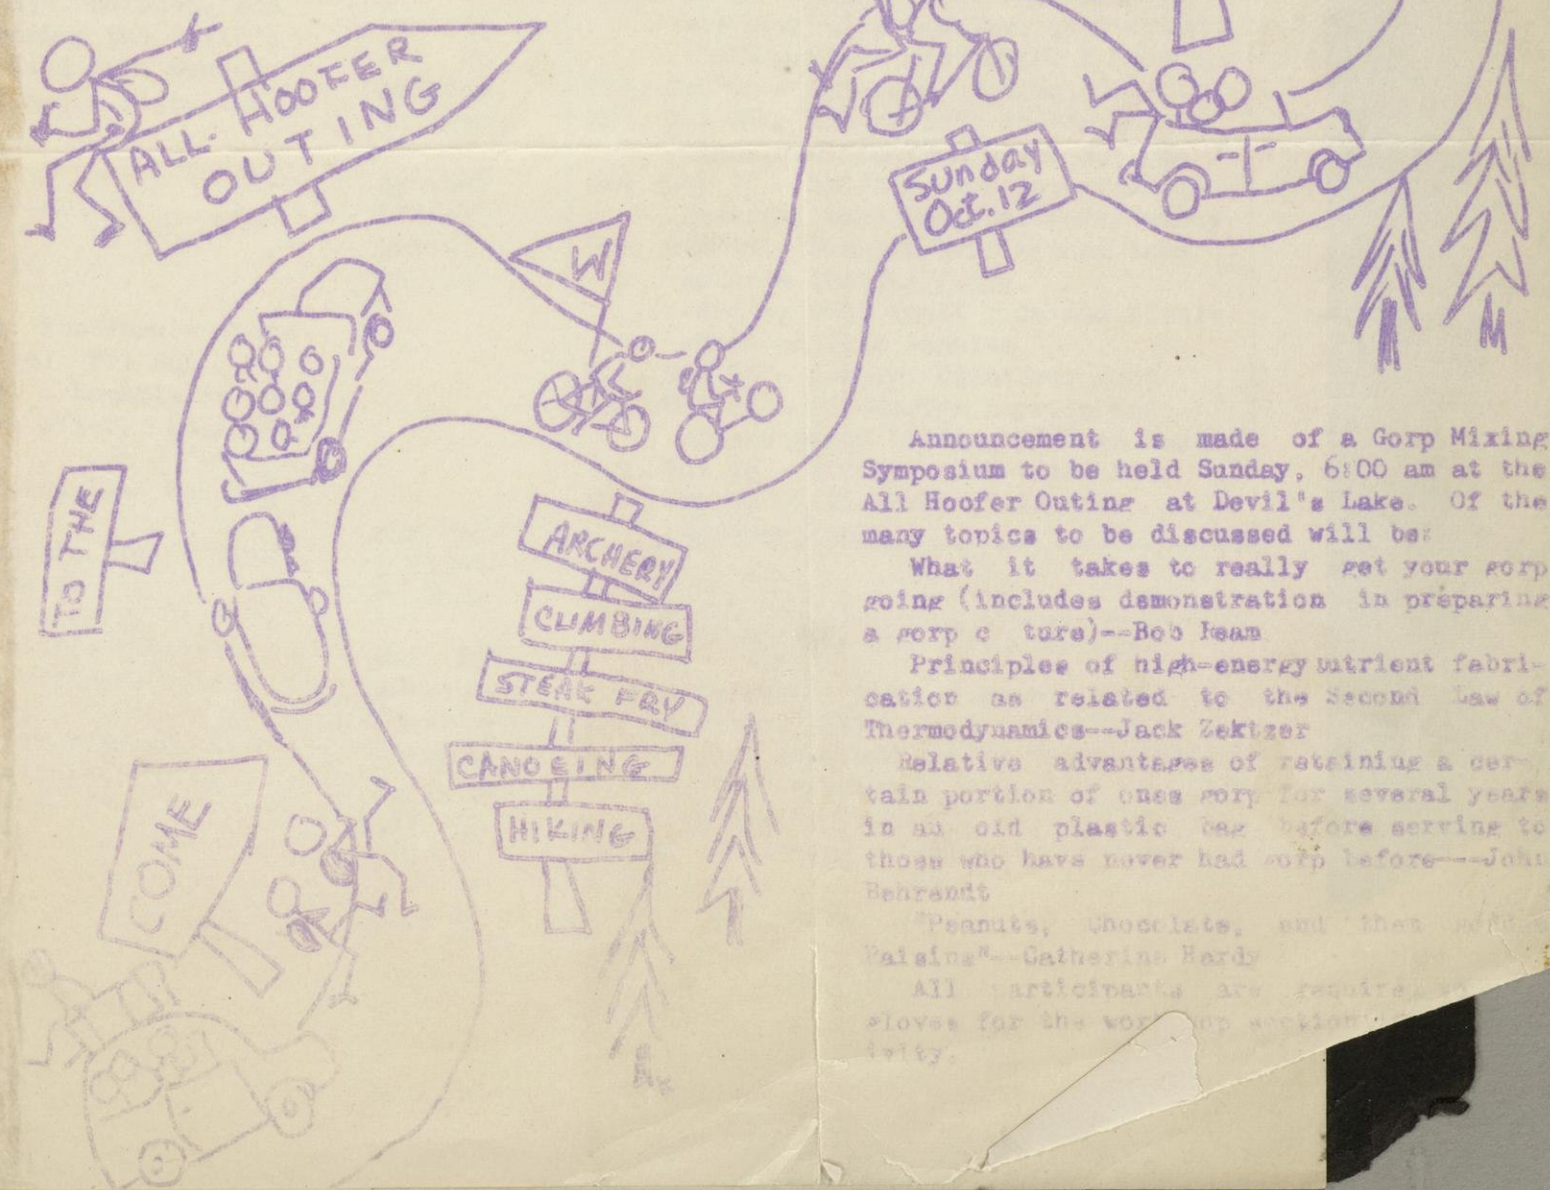 ALL-HOOFER
OUTING
Sunday
Oct. 12
W
TO THE
COME
ARCHERY
CLIMBING
STEAK FRY
CANOEING
HIKING
Announcement is made of a Gorp Mixing
Symposium to be held Sunday, 6:00 am at the
All Hoofer Outing at Devil's Lake. Of the
many topics to be discussed will be:
What it takes to really get your gorp
going (includes demonstration in preparing
a gorp c ture)--Bob
Principles of high-energy nutrient fabri-
cation as related to the Second Law of
Thermodynamics--Jack Zektzer
Relative advantages of retaining a cer-
tain portion of ones gorp for several years
in an old plastic bag before serving to
those who have never had gorp before---John
Behrendt
"Peanuts, Chocolate, and that
Raisins"--Catherine Hardy
All participants are require
gloves for the
ivity.